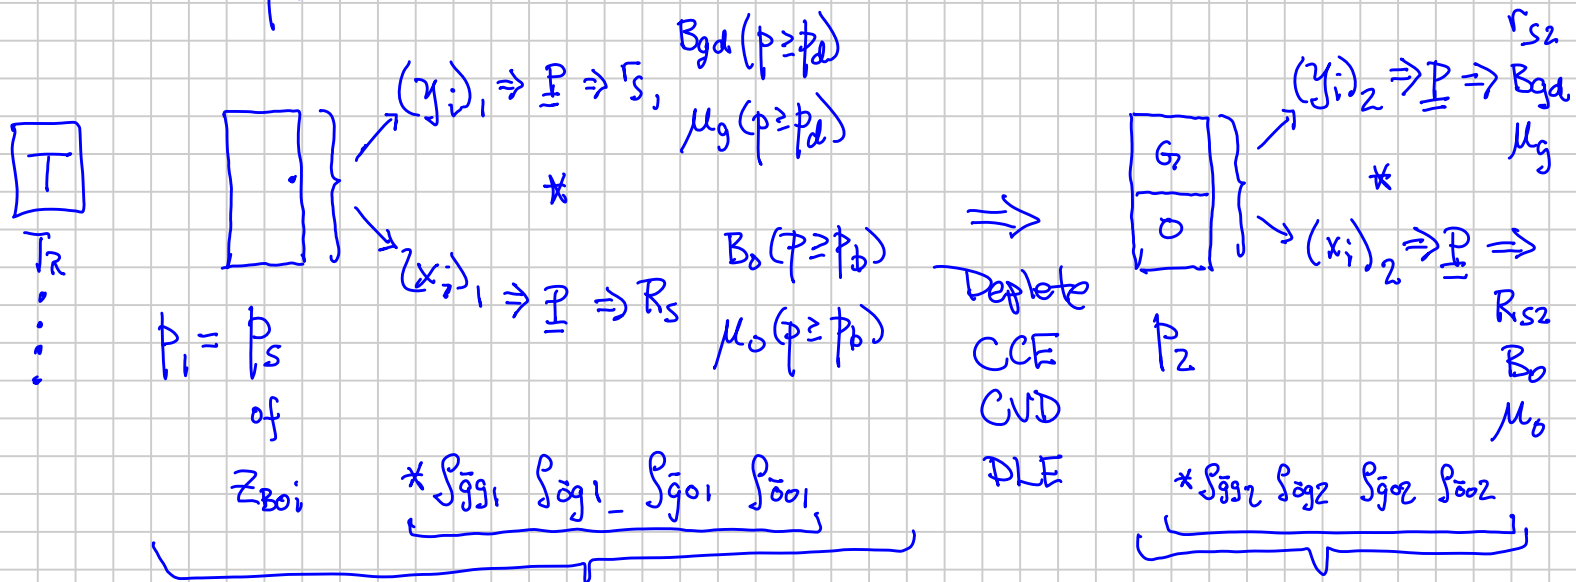 T
T_R
p₁ = p_s
of
z_Boi
(y_i)₁ ⇒ P ⇒ r_s,
B_gd (p ≥ p_d)
μ_g (p ≥ p_d)
*
(x_i)₁ ⇒ P ⇒ R_s
B_o (p ≥ p_b)
μ_o (p ≥ p_b)
* ρ_ḡg1 ρ_ōg1 ρ_ḡo1 ρ_ōo1
⇒
Deplete
CCE
CVD
DLE
G
O
p₂
(y_i)₂ ⇒ P ⇒
r_s2
B_gd
μ_g
*
(x_i)₂ ⇒ P ⇒
R_s2
B_o
μ_o
* ρ_ḡg2 ρ_ōg2 ρ_ḡo2 ρ_ōo2